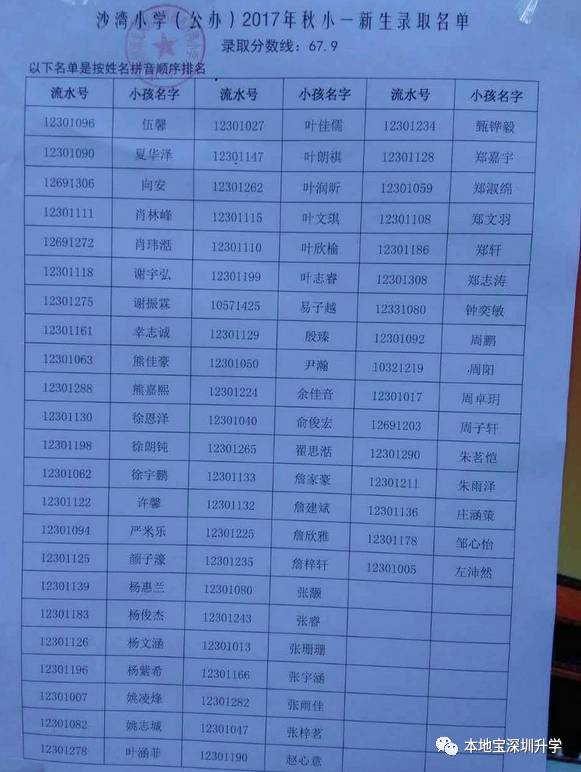 沙湾小学（公办）2017年秋小一新生录取名单
录取分数线：67.9
以下名单是按姓名拼音顺序排名
流水号 小孩名字 流水号 小孩名字 流水号 小孩名字
12301096 伍馨 12301027 叶佳儒 12301234 甄铧毅
12301090 夏华泽 12301147 叶朗祺 12301128 郑嘉宇
12691306 向安 12301262 叶润昕 12301059 郑淑绵
12301111 肖林峰 12301115 叶文琪 12301108 郑文羽
12691272 肖玮湉 12301110 叶欣榆 12301186 郑轩
12301118 谢宇弘 12301199 叶志睿 12301308 郑志涛
12301275 谢振霖 10571425 易子越 12331080 钟奕敏
12301161 幸志诚 12301129 殷臻 12301092 周鹏
12301063 熊佳豪 12301050 尹瀚 10321219 周阳
12301288 熊嘉熙 12301224 余佳音 12301017 周卓玥
12301130 徐恩洋 12301040 俞俊宏 12691203 周子轩
12301198 徐朗钝 12301265 翟思湉 12301290 朱茗恺
12301062 徐宇鹏 12301133 詹家豪 12301211 朱雨泽
12301122 许馨 12301132 詹建斌 12301136 庄涵策
12301094 严米乐 12301225 詹欣雅 12301178 邹心怡
12301125 颜子濠 12301235 詹梓轩 12301005 左沛然
12301139 杨惠兰 12301080 张灏
12301183 杨俊杰 12301243 张睿
12301126 杨文涵 12301013 张珊珊
12301196 杨紫希 12301166 张宇涵
12301007 姚凌烽 12301282 张雨佳
12301082 姚志城 12301047 张梓茗
12301278 叶涵菲 12301190 赵心意
本地宝深圳升学